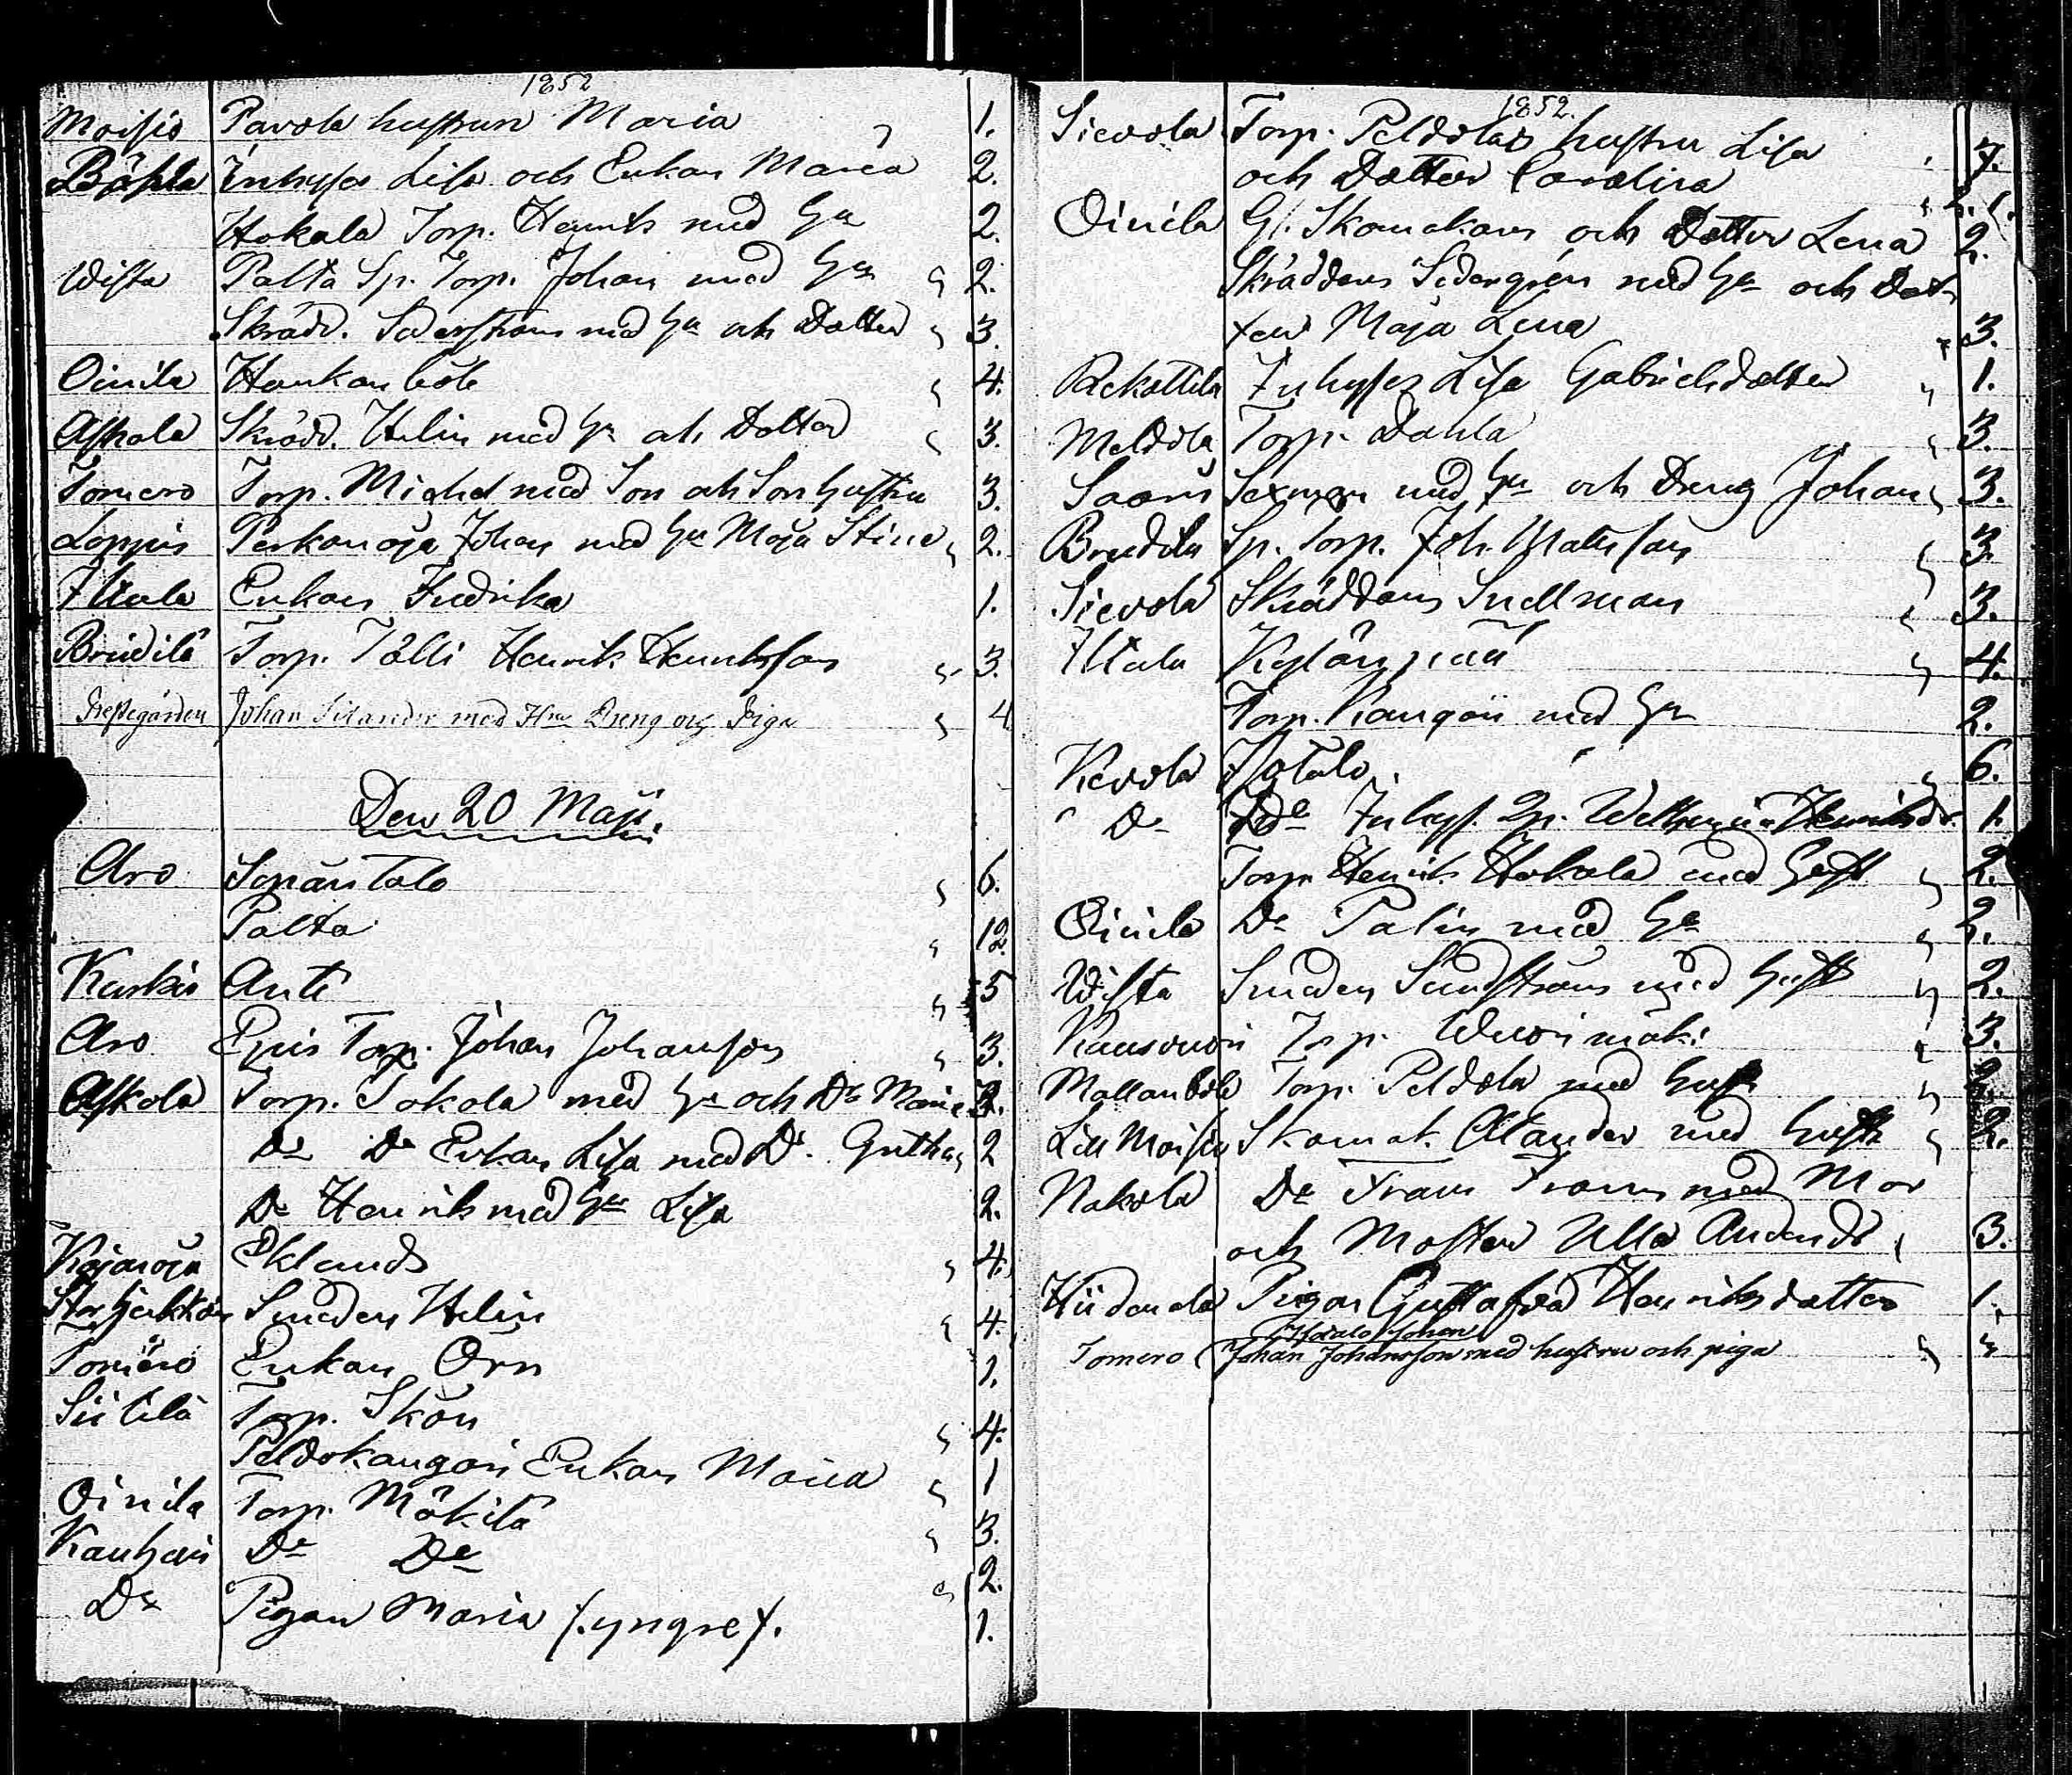 1852
Moisio Pavola hustrun Maria 1.
Böhla Inhyses Lisa och Enkan Maria 2.
Hokala Torp. Henrik med Hu 2.
Wista Palta Sp. Torp. Johan med Hu 2.
Skrädd. Söderström med Hu och Dotter 3.
Oinila Haukan böle 4.
Askola Skrädd. Helin med Hu och Dotter 3.
Tomero Torp. Michel med Son och Sonhustru 3.
Loppis Perkonoja Johan med Hu Maja Stina 2.
Iltala Enkan Fredrika 1.
Bruidilä Torp. Tálli Henrik Henriksson 3.
Prestegården Johan Silander med Hu Dreng och Piga 4
Den 20 Maji.
Aro Sepän Talo 6.
Palta 12.
Karkis Anti 5
Aro Torp. Johan Johansson 3.
Askola Torp. Sokola med Hu och Dr Maria
De De Enkan Lisa med D. 2
De Henrik med Hu Lisa 2.
Kojanoja Eklund 4.
Smeden Helin 4.
Tomero Enkan Örn 1.
Siitilä Torp. Skön 4.
Peldokangon Enkan Maria 1
Oinila Torp. Mäkilä 3.
Kauhois De De 2.
De Pigan Maria /.yngre/. 1.
1852.
Sievola Torp. Peldolas hustru Lisa
och Dotter Carolina
Oinila Gl. Skomakars och Dotter Lena 2.
Skräddars Sedergren med Hu och Dot
ter Maja Lena 3.
Rekottila Inhyses Lisa Gabrielsdotter 1.
Meldola Torp. Dahla 3.
Saaris Sexman med Hu och Dreng Johan 3.
Bruidila Sp. Torp. Joh. Matsson 3
Sievola Skräddars Snellman 3.
Iltala Kylänpää 4.
Torp. Kangon med Hu 2.
Kevola Isotalo 6.
De De Inhys. Qp. Wilhelmina Henriksdr. 1.
Torp. Henrik Hokala med Hust 2.
Oinila De Palin med Hu 2.
Wista Smeden Sundström med Hust 2.
Torp. Wuorimäki 3.
Mallanböle Torp. Peldola med Hust 2.
Lill Moisio Skomak. Olander med hustr 2.
Nakola De Frans Frans med Mor
och Moster Ulla Andersdr 3.
Hiidenala Pigan Gustafva Henriksdotter 1.
Isotalo Johan
Tomero Johan Johansson med hustru och piga